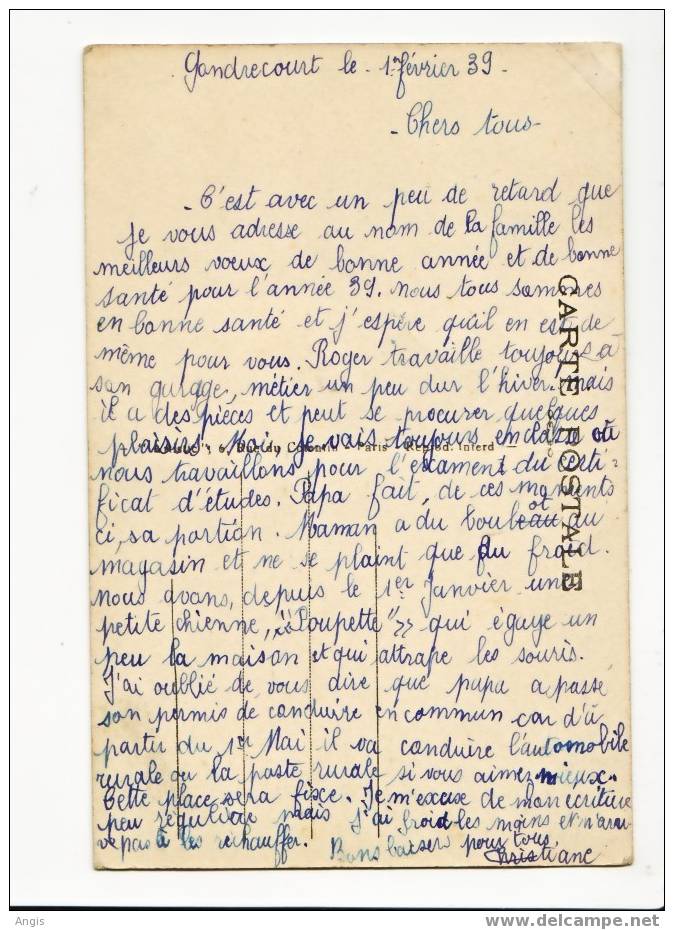 Gondrecourt le 1er février 39-
-Chers tous-
-C'est avec un peu de retard que
je vous adresse au nom de la famille les
meilleurs voeux de bonne année et de bonne
santé pour l'année 39. nous tous sommes
en bonne santé et j'espère qu'il en est de
même pour vous. Roger travaille toujours à
son garage, métier un peu dur l'hiver. mais
il a des pièces et peut se procurer quelques
plaisirs. Moi je vais toujours en classe où
nous travaillons pour l'examen du certi-
ficat d'études. Papa fait, de ces moments
ci, sa portion. Maman a du boulot au
magasin et ne se plaint que du froid.
nous avons, depuis le 1er Janvier une
petite chienne, "Poupette" qui égaye un
peu la maison et qui attrape les souris.
J'ai oublié de vous dire que papa a passé
son permis de conduire en commun car d'à
partir du 1er Mai il va conduire l'automobile
rurale ou la poste rurale si vous aimez mieux.
Cette place sera fixe. Je m'excuse de mon écriture
peu régulière mais j'ai froid les mains et n'arri-
ve pas à les réchauffer. Bons baisers pour tous.
Christiane
CARTE POSTALE
6, Rue du Colombier - Paris - Reprod. Interd
Angis
www.delcampe.net